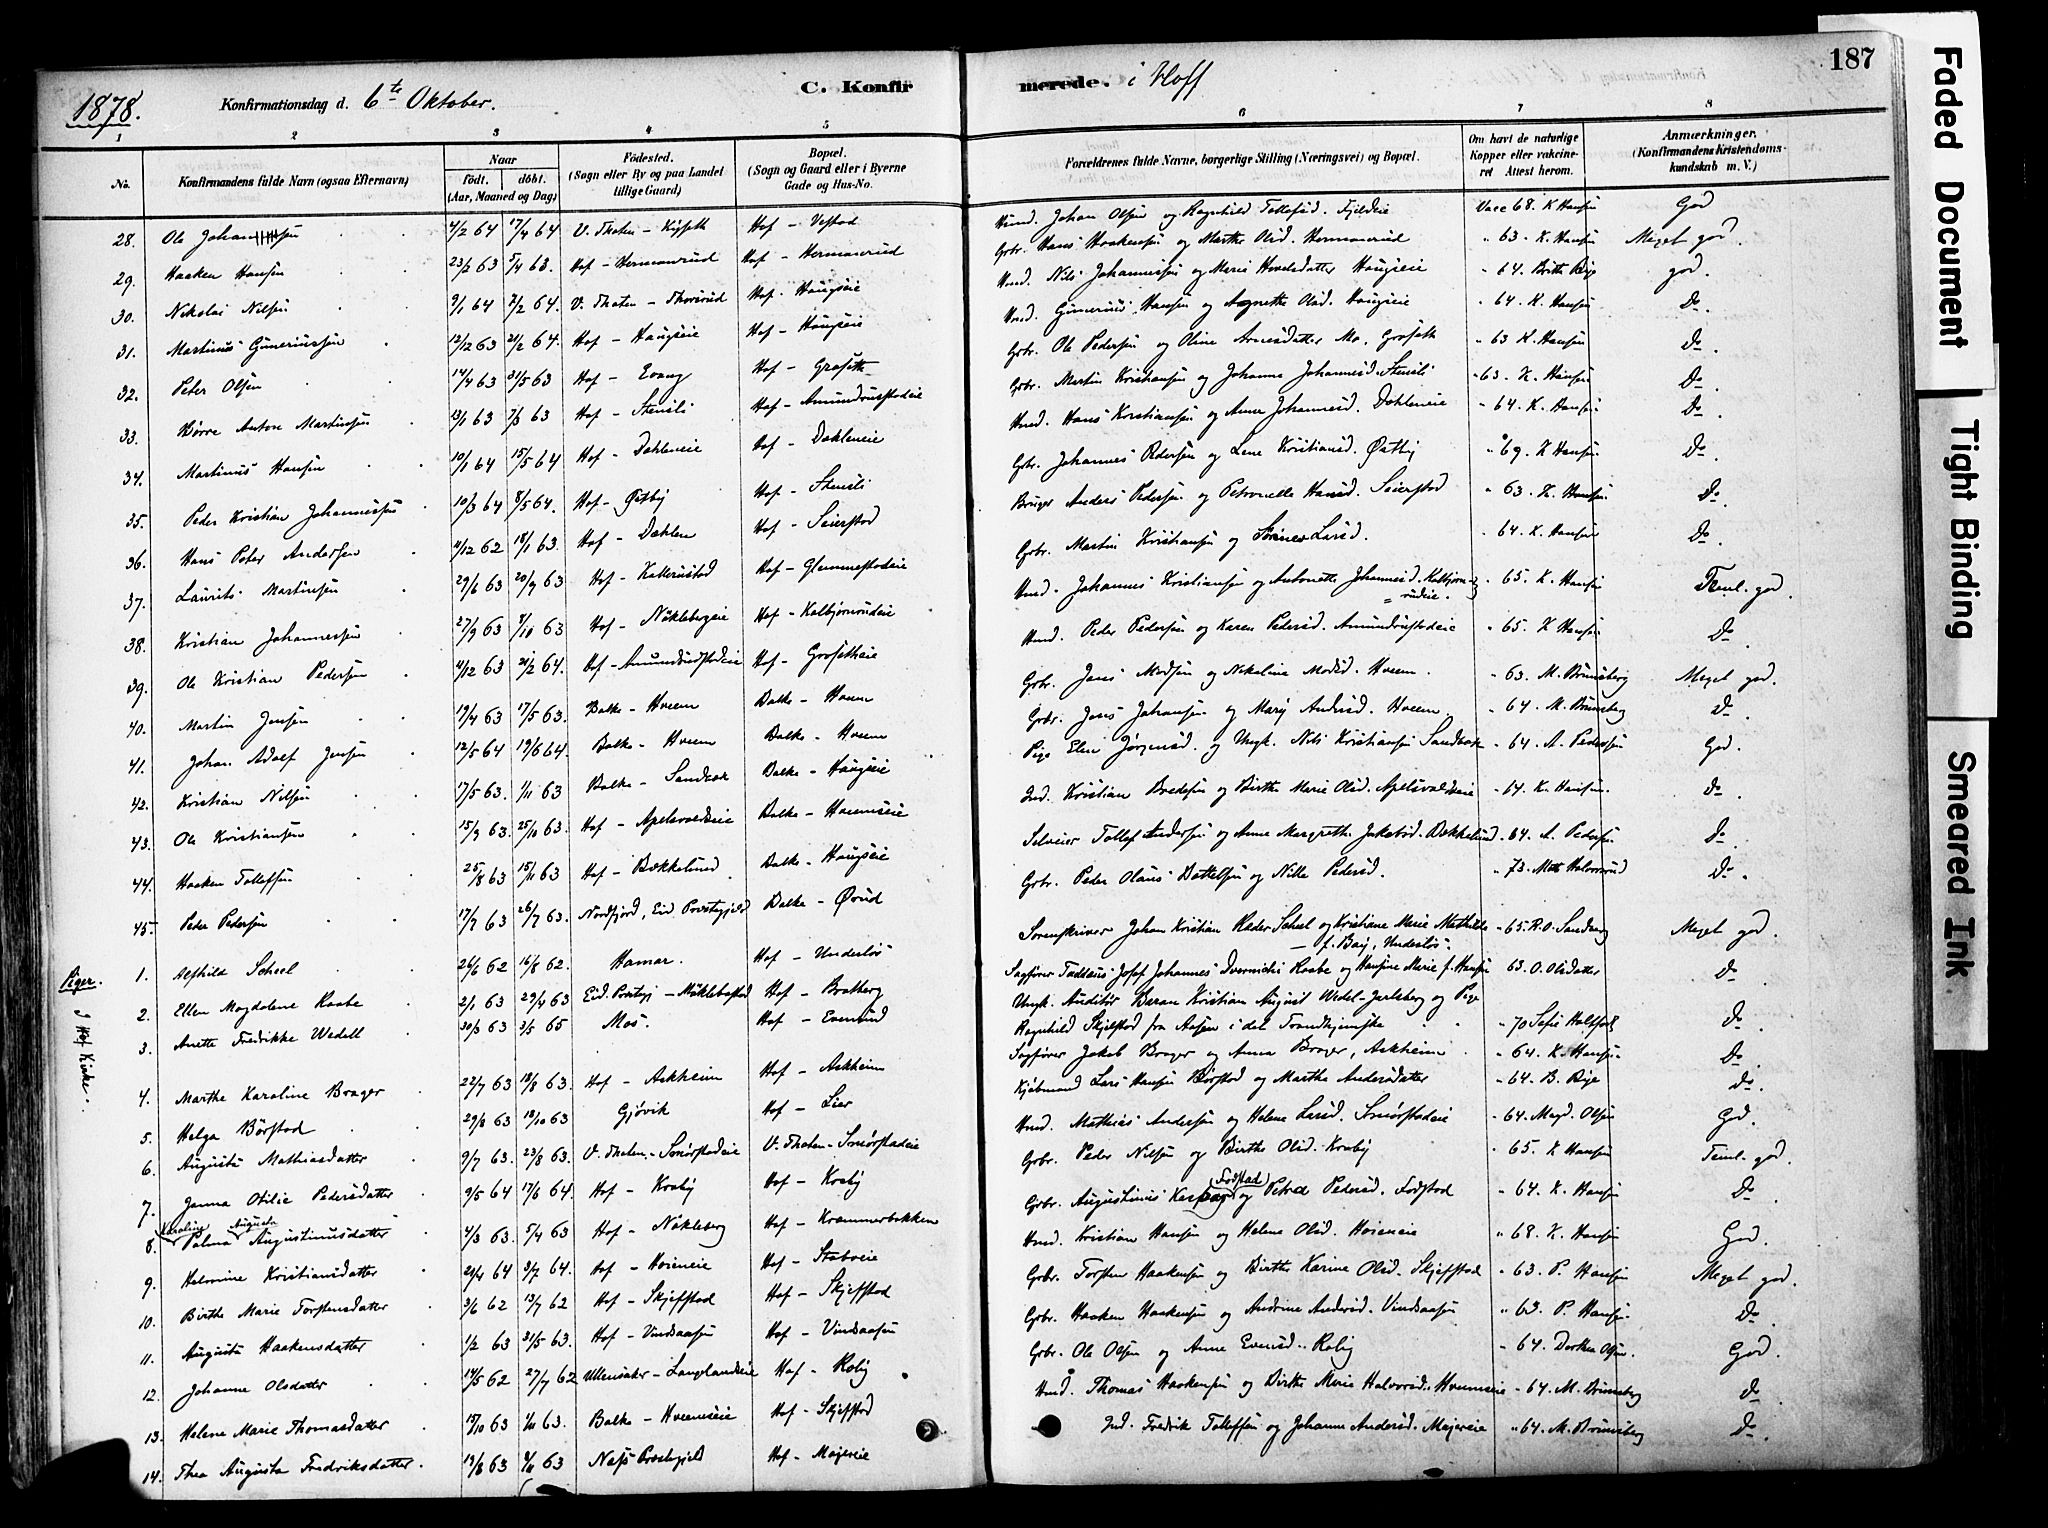 187
Faded Document
Tight Binding
Smeared Ink.
1878. Konfirmationsdag d. 6te Oktober. C. Konfirmerede. i Hoff
1 2 3 4 5 6 7 8
No. Konfirmandens fulde Navn (ogsaa Efternavn) Naar födt. döbt. (Aar, Maaned og Dag) Födested. (Sogn eller By og paa Landet tillige Gaard) Bopæl. (Sogn og Gaard eller i Byerne Gade og Hus-No. Forældrenes fulde Navne, borgerlige Stilling (Næringsvei) og Bopæl. Om havt de naturlige Kopper eller vakcineret Attest herom. Anmærkninger. (Konfirmandens Kristendomskundskab m. V.)
28. Ole Johansen 4/2 64 17/4 64 V. Thoten - Kifseth Hof - Vestad Hmd. Johan Olsen og Ragnhild Tollefsd. Fjeldeie Vacc 68. K Hansen God
29. Haaken Hansen 23/2 63 5/4 63. Hof - Hermanrud Hof - Hermanrud Grbr. Hans Haakensen og Marthe Olsd. Hermanrud " 63. K. Hansen Meget god.
30. Nikolai Nilsen 9/1 64 7/2 64. V. Thoten - Thorsrud Hof - Haugseie Hmd. Nils Johannessen og Marie Hovelsdatter Haugseie " 64. Brithe Rye god.
31. Martinus Guneriussen 12/12 63 21/2 64. Hof - Haugseie Hof - Haugseie Hmd. Gunerius Hansen og Agnethe Olsd. Haugseie " 64. K. Hansen Do.
32. Peter Olsen 14/4 63 31/5 63 Hof - Evang Hof - Grøseth Grbr. Ole Pedersen og Oline Arnesdatter Mo. Groseth " 63 K. Hansen Do.
33. Børre Anton Martinsen 13/1 63 7/3 63 Hof - Stensli Hof - Amundrudstadeie Grbr. Martin Kristiansen og Johanne Johannesd. Stensli " 63. K. Hansen Do.
34. Martinus Hansen 10/1 64 15/5 64 Hof - Dahleneie Hof - Dahleneie Hmd. Hans Kristiansen og Anne Johannesd. Dahleneie " 64. K. Hansen Do.
35. Peder Kristian Johannessen 10/3 64 8/5 64. Hof - Østby Hof - Stensli Grbr. Johannes Pedersen og Lene Kristiansd. Østby " 69. K Hansen Do.
36. Hans Peter Andersen 11/12 62 18/1 63. Hof - Dahlen Hof - Seierstad Bruger Anders Pedersen og Petronelle Hansd. Seierstad " 63. K. Hansen Do.
37. Laurits Martinsen 29/6 63 20/9 63 Hof - Kallerustad Hof - Glemmestadeie Grbr. Martin Kristiansen og Sørine Larsd. " 64. K. Hansen Do.
38. Kristian Johannessen 27/9 63 8/10 63 Hof - Nøklebergeie Hof - Kolbjørnrudeie Hmd. Johannes Kristiansen og Antonette Johannesd. Kolbjørnrudeie. " 65. K. Hansen Teml. god.
39. Ole Kristian Pedersen 11/12 63 21/2 64. Hof - Amundrudstadeie Hof - Grøsetheie Hmd. Peder Pedersen og Karen Pedersd. Amundrudstadeie " 65. K Hansen Do.
40. Martin Jensen 19/4 63 17/5 63. Balke - Hveem Balke - Hveem Grbr. Jens Madsen og Nikoline Madsd. Hveem. " 63. M. Brunsberg Meget god.
41. Johan Adolf Jensen 12/5 64 19/6 64. Balke - Hveem Balke - Hveem Grbr. Jens Johansen og Mary Andersd. Hveem " 64 M. Brunsberg Do.
42. Kristian Nilsen 17/5 63. 1/11 63 Balke - Sandbak Balke - Haugseie Pige Eline Jørgensd. og Ungk. Nils Kristiansen Sandbak " 64. A. Pedersen God.
43. Ole Kristiansen 15/9 63. 25/10 63. Hof - Apelsvoldeie Balke - Hveemseie Ind. Kristian Bredesen og Birthe Marie Olsd. Apelsvoldeie " 64. K. Hansen. Do.
44. Haaken Tollefsen 25/8 63 15/11 63 Hof - Bækkelund Balke - Haugseie Selveier Tollef Andersen og Anne Margrethe Jakobsd. Bækkelund " 64. A. Pedersen Do.
45. Peder Pedersen 17/7 63 26/7 63. Nordfjord, Eid Prestegjeld Balke - Ørud Grbr. Peder Olaus Bottelsen og Nille Pedersd. " 73. Mads Halvorsrud Do.
Piger.
I Hof Kirke.
1. Alfhild Scheel 26/6 62 16/8 62. Hamar. Hof - Undeslös Sorenskriver Johan Kristian Ræder Scheel og Kristiane Marie Mathilde f. Bay, Undeslös. " 65. R. O. Sandberg Meget god.
2. Ellen Magdalene Raabe 2/1 63 29/4 63 Eid. Prestgj - Nøklebostad Hof - Bratberg Sagfører Taddæus Josef Johannes Dvernicki Raabe og Hansine Marie f. Hansen 63. O. Olsdatter Do
3. Anette Fredrikke Wedell 30/3 63 3/5 65 Mos. Hof - Evenrud Ungk. Auditör Baron Kristian August Wedel-Jarlsberg og Pige Ragnhild Skjelstad fra Aasen i det Trondhjemske " 70 Sofie Holtfodt Do.
4. Marthe Karoline Brager 22/7 63 18/8 63. Hof - Askheim Hof - Askheim Sagfører Jakob Brager og Anna Brager, Askheim " 64. K. Hansen. Do.
5. Helga Börstad 29/8 63 18/10 63 Gjövik Hof - Lier Kjøbmand Lars Hansen Börstad og Marthe Andersdatter " 64. B. Rye Do.
6. Augusta Mathiasdatter 9/7 63. 23/8 63. V. Thoten - Smörstadeie V. Thoten - Smörstadeie Hmd. Mathias Andersen og Helene Larsd. Smörstadeie " 64. Magd. Olsen God.
7. Janna Otilie Pedersdatter 9/5 64 17/6 64 Hof - Kraby Hof - Kraby Grbr. Peder Nilsen og Birthe Olsd. Kraby " 65. K Hansen Teml. god.
8. Karoline Palma Augusta Augustinusdatter 4/3 63. 5/4 63 Hof - Nökleberg Hof - Kræmmerbakken Grbr. Augustinus Kaspar Fodstad og Petra Pedersd. Fodstad " 64. K. Hansen Do.
9. Helmine Kristiansdatter 24/4 64 3/7 64. Hof - Hoieneie Hof - Staboeie Hmd. Kristian Hansen og Helene Olsd. Hoieneie " 68. K. Hansen God.
10. Birthe Marie Torstensdatter 3/6 62 13/7 62 Hof - Skjefstad Hof - Skjefstad Grbr. Torsten Haakensen og Birthe Karine Olsd. Skjefstad " 63. P. Hansen Meget god.
11. Augusta Haakensdatter 1/2 63 31/5 63. Hof - Vindsaasen Hof - Vindsaasen Grbr. Haaken Haakensen og Andrine Andersd. Vindsaasen " 63. P. Hansen. Do.
12. Johanne Olsdatter 14/5 62 27/7 62 Ullensaker - Langlandseie Hof - Roby Grbr. Ole Olsen og Anne Evensd. Roby " 64. Dorthea Olsen. God.
13. Helene Marie Thomasdatter 15/10 63 1/11 63. Balke - Hveemseie Hof - Skjefstad Hmd. Thomas Haakensen og Birthe Marie Halvorsd. Hveemseie " 64. M. Brunsberg Do.
14. Thea Augusta Fredriksdatter. 13/8 63 4/11 63 Næs Prestegjeld Hof - Majereie Ind. Fredrik Tollefsen og Johanne Andersd. Majereie " 64. M. Brunsberg Do.